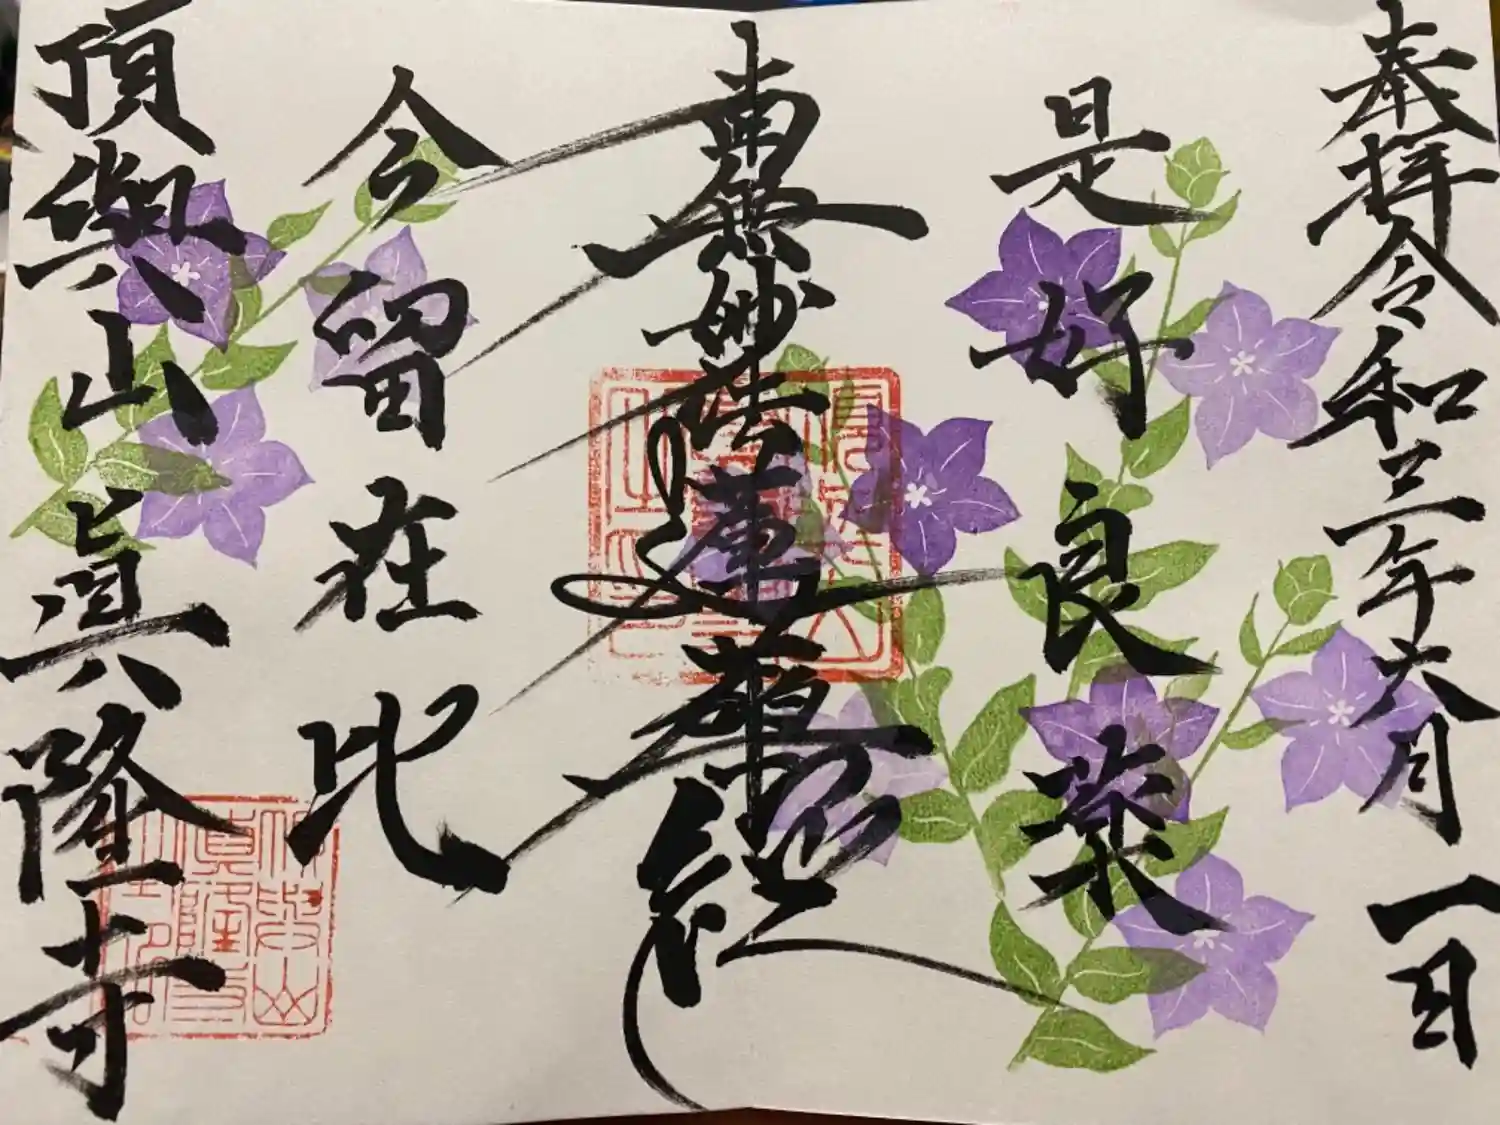 奉拝令和三年六月一日
是好良薬
南無妙法蓮華経
今留在此
頂興山眞隆寺